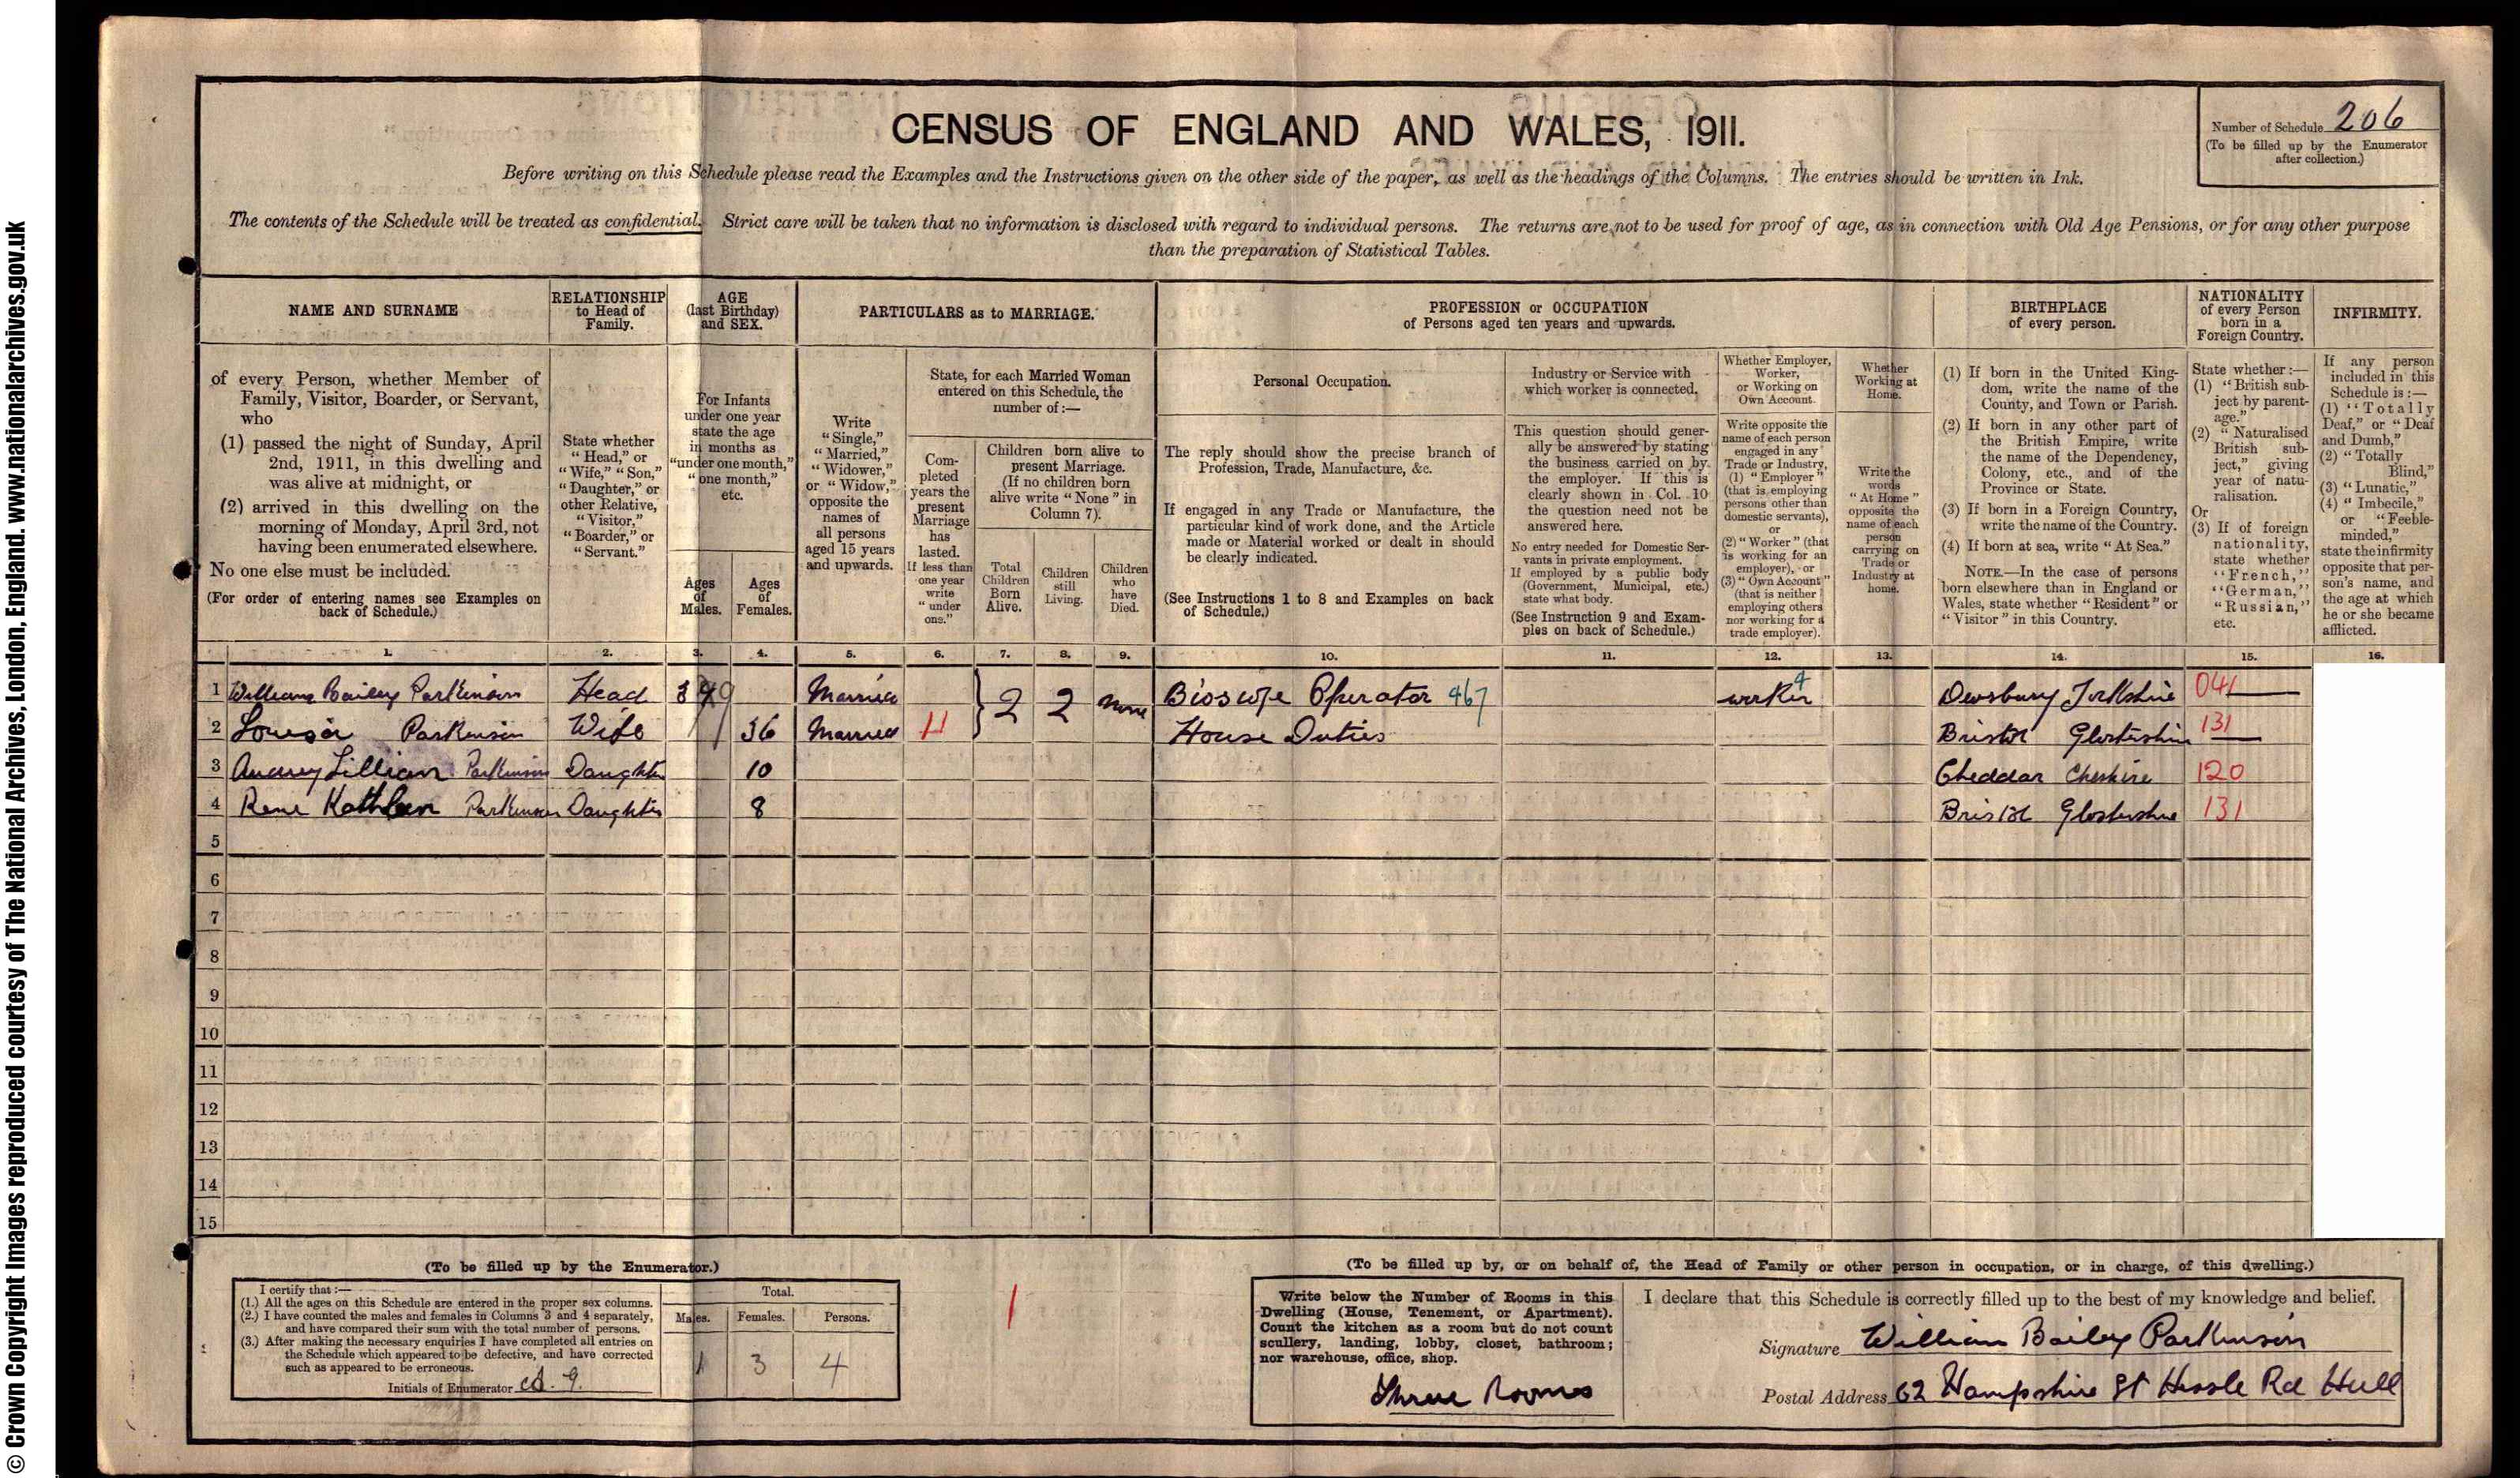 © Crown Copyright Images reproduced courtesy of The National Archives, London, England. www.nationalarchives.gov.uk
CENSUS OF ENGLAND AND WALES, 1911.
Number of Schedule 206
(To be filled up by the Enumerator
after collection.)
Before writing on this Schedule please read the Examples and the Instructions given on the other side of the paper, as well as the headings of the Columns. The entries should be written in Ink.
The contents of the Schedule will be treated as confidential. Strict care will be taken that no information is disclosed with regard to individual persons. The returns are not to be used for proof of age, as in connection with Old Age Pensions, or for any other purpose
than the preparation of Statistical Tables.
NAME AND SURNAME
of every Person, whether Member of
Family, Visitor, Boarder, or Servant,
who
(1) passed the night of Sunday, April
2nd, 1911, in this dwelling and
was alive at midnight, or
(2) arrived in this dwelling on the
morning of Monday, April 3rd, not
having been enumerated elsewhere.
No one else must be included.
(For order of entering names see Examples on
back of Schedule.)
RELATIONSHIP
to Head of
Family.
State whether
"Head," or
"Wife," "Son,"
"Daughter," or
other Relative,
"Visitor,"
"Boarder," or
"Servant."
AGE
(last Birthday)
and SEX.
For Infants
under one year
state the age
in months as
"under one month,"
"one month,"
etc.
Ages
of
Males.
Ages
of
Females.
PARTICULARS as to MARRIAGE.
Write
"Single,"
"Married,"
"Widower,"
or "Widow,"
opposite the
names of
all persons
aged 15 years
and upwards.
State, for each Married Woman
entered on this Schedule, the
number of :—
Com-
pleted
years the
present
Marriage
has
lasted.
If less than
one year
write
"under
one."
Children born alive to
present Marriage.
(If no children born
alive write "None" in
Column 7).
Total
Children
Born
Alive.
Children
still
Living.
Children
who
have
Died.
PROFESSION or OCCUPATION
of Persons aged ten years and upwards.
Personal Occupation.
The reply should show the precise branch of
Profession, Trade, Manufacture, &c.
If engaged in any Trade or Manufacture, the
particular kind of work done, and the Article
made or Material worked or dealt in should
be clearly indicated.
(See Instructions 1 to 8 and Examples on back
of Schedule.)
Industry or Service with
which worker is connected.
This question should gener-
ally be answered by stating
the business carried on by
the employer. If this is
clearly shown in Col. 10
the question need not be
answered here.
No entry needed for Domestic Ser-
vants in private employment.
If employed by a public body
(Government, Municipal, etc.)
state what body.
(See Instruction 9 and Exam-
ples on back of Schedule.)
Whether Employer,
Worker,
or Working on
Own Account.
Write opposite the
name of each person
engaged in any
Trade or Industry,
(1) "Employer"
(that is employing
persons other than
domestic servants),
or
(2) "Worker" (that
is working for an
employer), or
(3) "Own Account"
(that is neither
employing others
nor working for a
trade employer).
Whether
Working at
Home.
Write the
words
"At Home"
opposite the
name of each
person
carrying on
Trade or
Industry at
home.
BIRTHPLACE
of every person.
(1) If born in the United King-
dom, write the name of the
County, and Town or Parish.
(2) If born in any other part of
the British Empire, write
the name of the Dependency,
Colony, etc., and of the
Province or State.
(3) If born in a Foreign Country,
write the name of the Country.
(4) If born at sea, write "At Sea."
NOTE.—In the case of persons
born elsewhere than in England or
Wales, state whether "Resident" or
"Visitor" in this Country.
NATIONALITY
of every Person
born in a
Foreign Country.
State whether :—
(1) "British sub-
ject by parent-
age."
(2) "Naturalised
British sub-
ject," giving
year of natu-
ralisation.
Or
(3) If of foreign
nationality,
state whether
"French,"
"German,"
"Russian,"
etc.
INFIRMITY.
If any person
included in this
Schedule is :—
(1) "Totally
Deaf," or "Deaf
and Dumb,"
(2) "Totally
Blind,"
(3) "Lunatic,"
(4) "Imbecile,"
or "Feeble-
minded,"
state the infirmity
opposite that per-
son's name, and
the age at which
he or she became
afflicted.
1. 2. 3. 4. 5. 6. 7. 8. 9. 10. 11. 12. 13. 14. 15. 16.
1 William Bailey Parkinson Head 39 Married 2 2 none Bioscope Operator 467 worker 4 Dewsbury Yorkshire 041
2 Louisa Parkinson Wife 36 Married 11 House Duties Bristol Glostershire 131
3 Audrey Lillian Parkinson Daughter 10 Cheddar Cheshire 120
4 Rene Kathleen Parkinson Daughter 8 Bristol Glostershire 131
5
6
7
8
9
10
11
12
13
14
15
(To be filled up by the Enumerator.)
I certify that :—
(1.) All the ages on this Schedule are entered in the proper sex columns.
(2.) I have counted the males and females in Columns 3 and 4 separately,
and have compared their sum with the total number of persons.
(3.) After making the necessary enquiries I have completed all entries on
the Schedule which appeared to be defective, and have corrected
such as appeared to be erroneous.
Initials of Enumerator
Total.
Males. Females. Persons.
1 3 4
(To be filled up by, or on behalf of, the Head of Family or other person in occupation, or in charge, of this dwelling.)
Write below the Number of Rooms in this
Dwelling (House, Tenement, or Apartment).
Count the kitchen as a room but do not count
scullery, landing, lobby, closet, bathroom;
nor warehouse, office, shop.
Three Rooms
I declare that this Schedule is correctly filled up to the best of my knowledge and belief.
Signature William Bailey Parkinson
Postal Address 62 Hampshire St Hessle Rd Hull